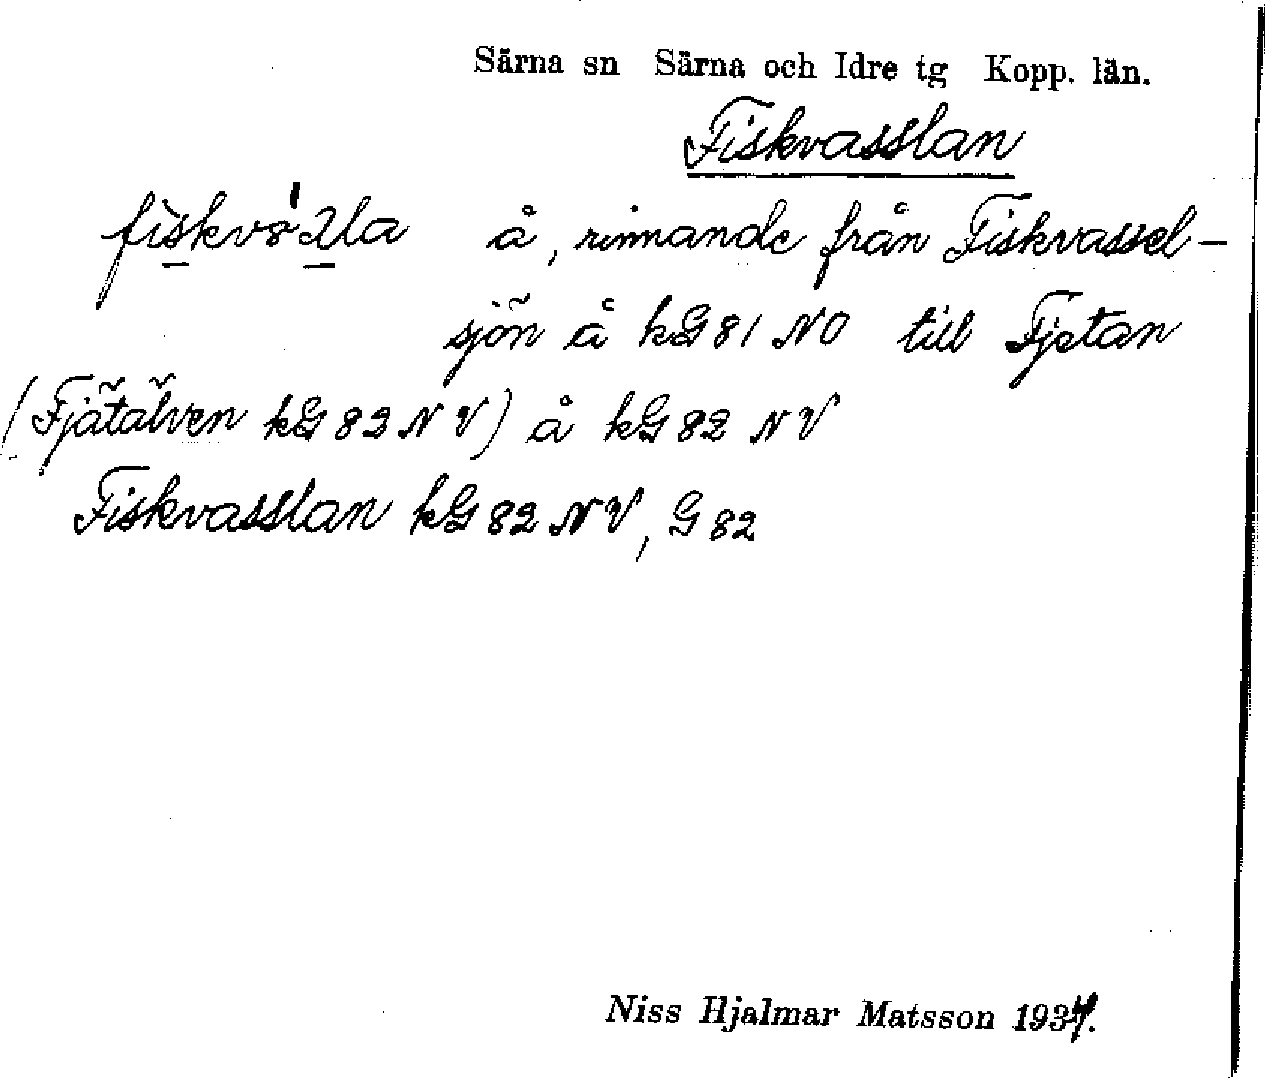 Särna sn Särna och Idre tg Kopp. län.
Fiskvasslan
å, rinnande från Fiskvassel-
sjön å kG 81 NO till Fjetan
(Fjätälven kG 82 NV) å kG 82 NV
Fiskvasslan kG 82 NV, G 82
Niss Hjalmar Matsson 1934.